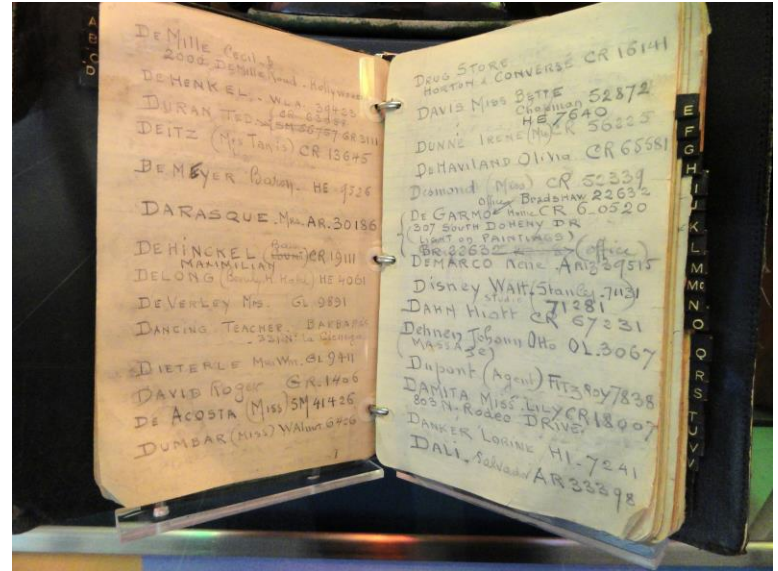 A
B
C
D
DeMille Cecil B
2000 DeMille Road - Hollywood
DEHENKEL - WLA. 39425
DURAN TED. SM 56757 GR 3111
DEITZ (Mrs Tanis) CR 13645
DEMEYER Baron. HE - 9526
DARASQUE. Mme AR. 30186
DEHINCKEL CR 19111
MAXIMILIAN
DELONG HE 4061
DEVERLEY Mrs. GL 9891
DANCING TEACHER. BARBARA
La Cienega
DIETERLE Mr Wm. GL 9411
DAVID Roger GR. 1406
DE ACOSTA (Miss) SM 41426
DUMBAR (Miss) WAlnut 6426
DRUG STORE CR 16141
HORTON & CONVERSE
DAVIS MISS BETTE 52872
Chapman
HE 7640
DUNNE IRENE (Miss) CR 56225
DEHAVILAND Olivia CR 65581
Desmond (Miss) CR 52339
Office Bradshaw 22632
DE GARMO Home CR 6-0520
307 SOUTH DOHENY DR
(LIGHT ON PAINTINGS)
BR. 22632 (office)
DEMARCO Rene AR 39515
Disney Walt. (Stanley. 71131
studio 71281
DAHN Hiatt CR 67231
Dehnen Johann Otto OL. 3067
(MASSAGE)
Dupont (Agent) FITZROY 7838
DAMITA MISS. LILY CR 18007
803 N. Rodeo DRIVE.
DANKER LORINE HI. 7241
DALI. Salvador AR 33398
E
F
G
H
I
J
K
L
M
Mc
N
O
Q
R
S
T
U
V